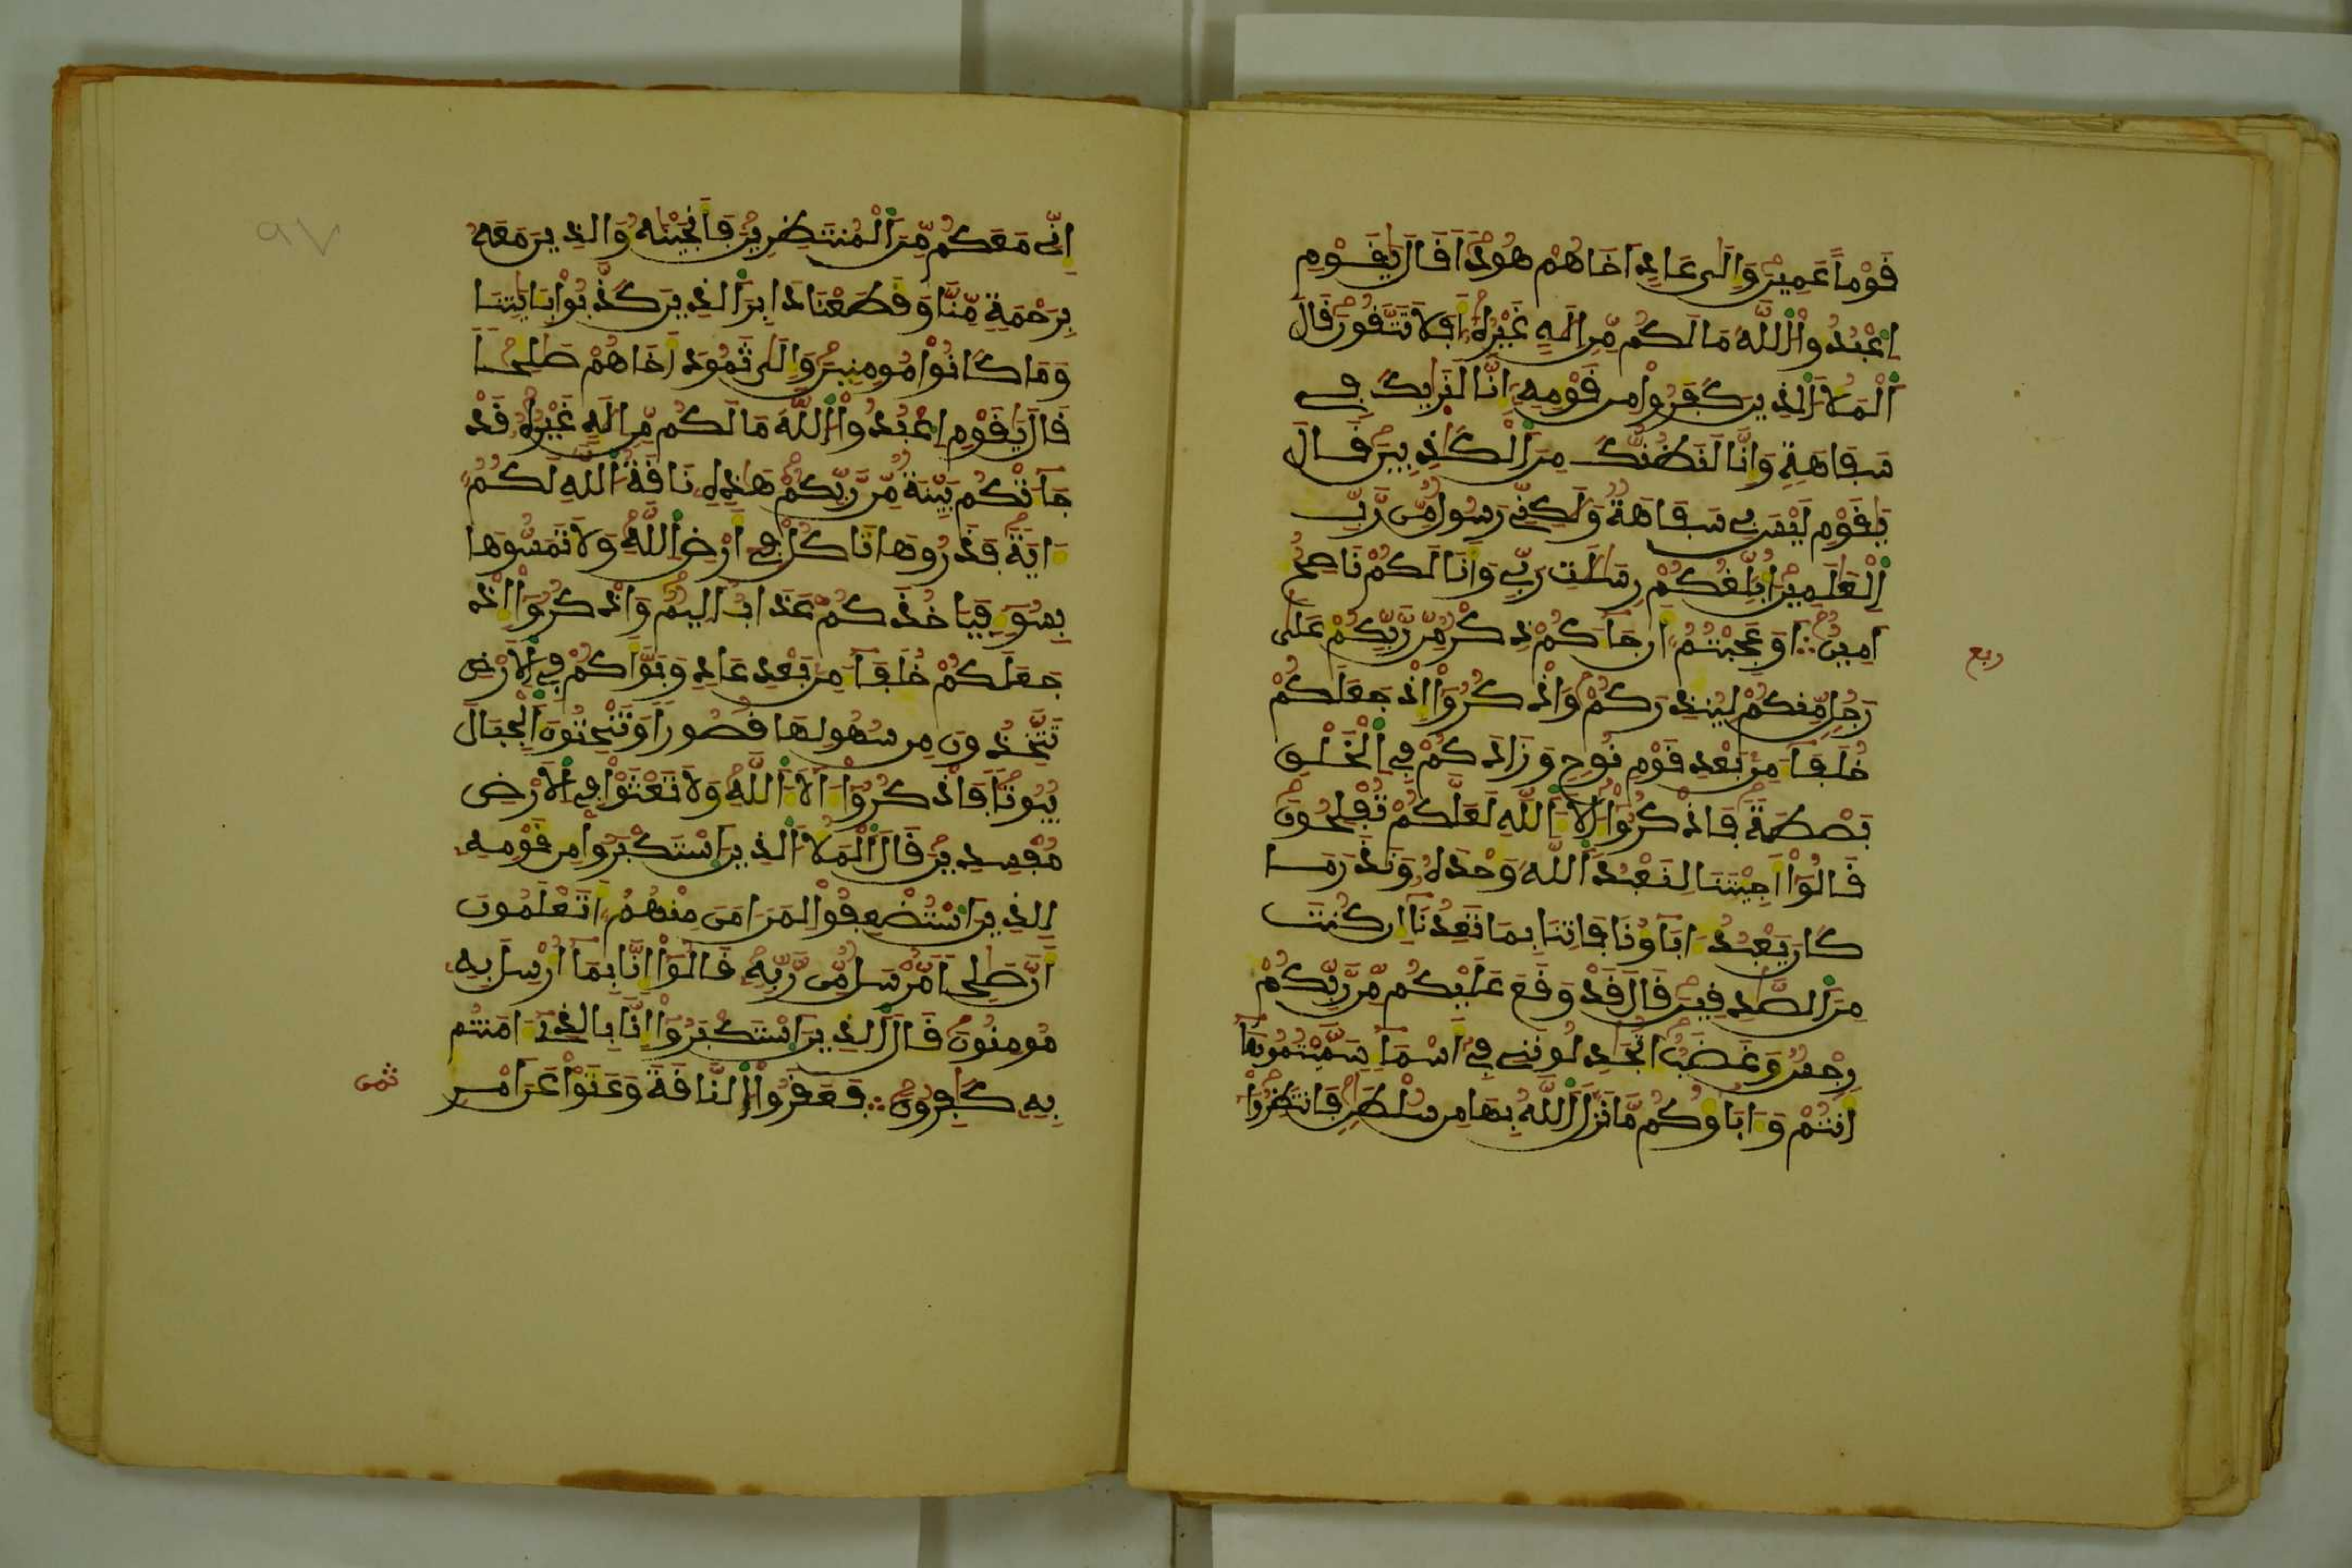 قَوْماً عَمِينَ وَإِلَىٰ عَادٍ اَخَاهُمْ هُوداً قَالَ يَٰقَوْمِ
اِ۟عْبُدُواْ اُ۬للَّهَ مَا لَكُم مِّنِ اِلَٰهٍ غَيْرُهُۥ أَفَلَا تَتَّقُونَ قَالَ
اَ۬لْمَلَأُ اُ۬لذِينَ كَفَرُواْ مِن قَوْمِهِۦ إِنَّا لَنَرَيٰكَ فِے
سَفَاهَةٍ وَإِنَّا لَنَظُنُّكَ مِنَ اَ۬لْكَٰذِبِينَ قَالَ
يَٰقَوْمِ لَيْسَ بِے سَفَاهَةٌ وَلَٰكِنِّے رَسُولٌ مِّن رَّبِّ
اِ۬لْعَٰلَمِينَ أُبَلِّغُكُمْ رِسَٰلَٰتِ رَبِّے وَأَنَا لَكُمْ نَاصِحٌ
اَمِينٌ ۞ أَوَعَجِبْتُمُۥ أَن جَآءَكُمْ ذِكْرٌ مِّن رَّبِّكُمْ عَلَىٰ
رَجُلٍ مِّنكُمْ لِيُنذِرَكُمْ وَاذْكُرُوٓاْ إِذْ جَعَلَكُمْ
خُلَفَآءَ مِنۢ بَعْدِ قَوْمِ نُوحٍ وَزَادَكُمْ فِے اِ۬لْخَلْقِ
بَصْۜطَةً فَاذْكُرُوٓاْ ءَالَآءَ اَ۬للَّهِ لَعَلَّكُمْ تُفْلِحُونَ
قَالُوٓاْ أَجِئْتَنَا لِنَعْبُدَ اَ۬للَّهَ وَحْدَهُۥ وَنَذَرَ مَا
كَانَ يَعْبُدُ ءَابَآؤُنَا فَاتِنَا بِمَا تَعِدُنَآ إِن كُنتَ
مِنَ اَ۬لصَّٰدِقِينَ قَالَ قَدْ وَقَعَ عَلَيْكُم مِّن رَّبِّكُمْ
رِجْسٌ وَغَضَبٌ اَتُجَٰدِلُونَنِے فِےٓ أَسْمَآءٍ سَمَّيْتُمُوهَآ
أَنتُمْ وَءَابَآؤُكُم مَّا نَزَّلَ اَ۬للَّهُ بِهَا مِن سُلْطَٰنٍ فَانتَظِرُوٓاْ
ربع
إِنِّے مَعَكُم مِّنَ اَ۬لْمُنتَظِرِينَ فَأَنجَيْنَٰهُ وَالذِينَ مَعَهُۥ
بِرَحْمَةٍ مِّنَّا وَقَطَعْنَا دَابِرَ اَ۬لذِينَ كَذَّبُواْ بِـَٔايَٰتِنَا
وَمَا كَانُواْ مُومِنِينَ وَإِلَىٰ ثَمُودَ أَخَاهُمْ صَٰلِحاً
قَالَ يَٰقَوْمِ اِ۟عْبُدُواْ اُ۬للَّهَ مَا لَكُم مِّنِ اِلَٰهٍ غَيْرُهُۥ قَدْ
جَآءَتْكُم بَيِّنَةٌ مِّن رَّبِّكُمْ هَٰذِهِۦ نَاقَةُ اُ۬للَّهِ لَكُمُۥ
ءَايَةً فَذَرُوهَا تَاكُلْ فِےٓ أَرْضِ اِ۬للَّهِ وَلَا تَمَسُّوهَا
بِسُوٓءٍ فَيَاخُذَكُمْ عَذَابٌ اَلِيمٌ وَاذْكُرُوٓاْ إِذْ
جَعَلَكُمْ خُلَفَآءَ مِنۢ بَعْدِ عَادٍ وَبَوَّأَكُمْ فِے اِ۬لَارْضِ
تَتَّخِذُونَ مِن سُهُولِهَا قُصُوراً وَتَنْحِتُونَ اَ۬لْجِبَالَ
بُيُوتاً فَاذْكُرُوٓاْ ءَالَآءَ اَ۬للَّهِ وَلَا تَعْثَوْاْ فِے اِ۬لَارْضِ
مُفْسِدِينَ قَالَ اَ۬لْمَلَأُ اُ۬لذِينَ اَ۪سْتَكْبَرُواْ مِن قَوْمِهِۦ
لِلذِينَ اَ۟سْتُضْعِفُواْ لِمَنَ اٰمَنَ مِنْهُمُۥٓ أَتَعْلَمُونَ
أَنَّ صَٰلِحاً مُّرْسَلٌ مِّن رَّبِّهِۦ قَالُوٓاْ إِنَّا بِمَآ أُرْسِلَ بِهِۦ
مُومِنُونَ قَالَ اَ۬لذِينَ اَ۪سْتَكْبَرُوٓاْ إِنَّا بِالذِےٓ ءَامَنتُم
بِهِۦ كَٰفِرُونَ ۞ فَعَقَرُواْ اُ۬لنَّاقَةَ وَعَتَوْاْ عَنَ اَمْرِ
ثمن
٩٧